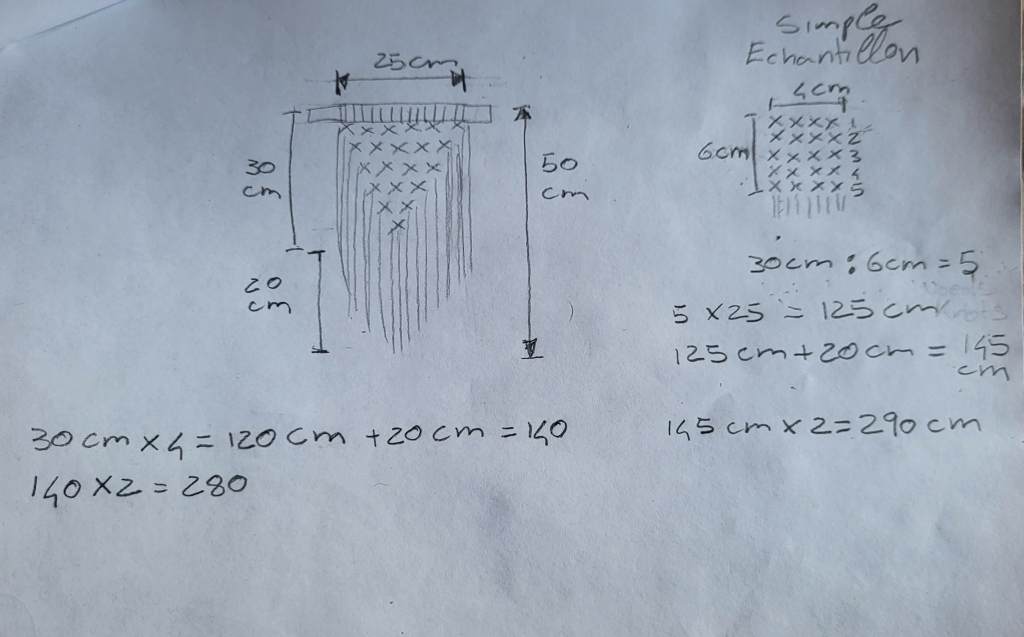 Simple
Echantillon
25cm
30
cm
50
cm
20
cm
4cm
6cm
1
2
3
4
5
30cm : 6cm = 5
5 x 25 = 125 cm
125cm + 20cm = 145
cm
145 cm x 2 = 290 cm
30 cm x 4 = 120 cm + 20 cm = 140
140 x 2 = 280